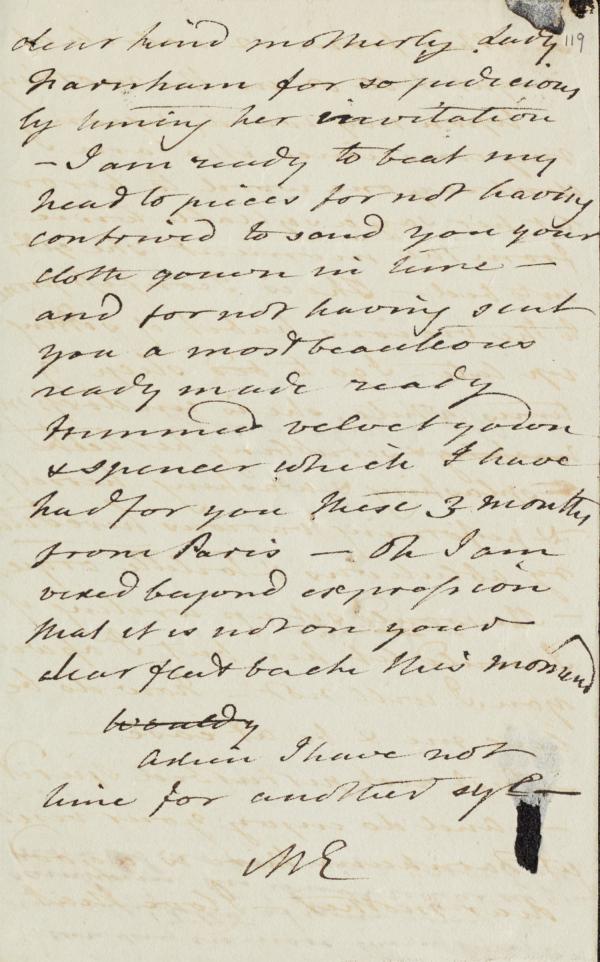 dear kind motherly Lady 119
Farnham for so judicious
ly timing her invitation
– I am ready to beat my
head to pieces for not having
contrived to send you your
cloth gown in time –
and for not having sent
you a most beauteous
ready made ready
trimmed velvet gown
& spencer which I have
had for you these 3 months
from Paris – Oh I am
vexed beyond expression
that it is not on your
dear back this moment
Adieu I have not
time for another syl –
ME